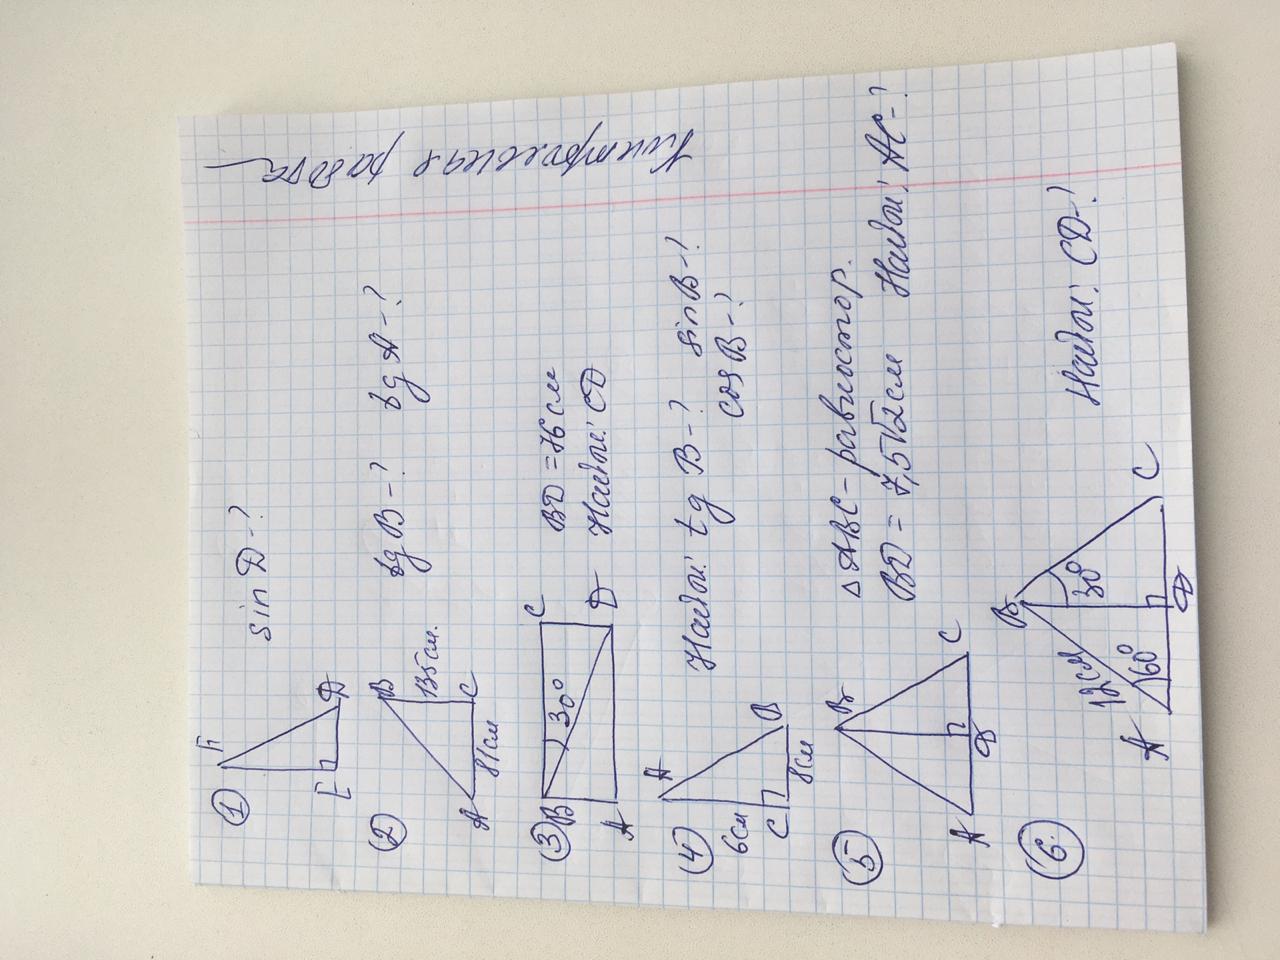 Контрольная работа
① sin D-?
F
E
D
② tg B-? tg A-?
B
135 см.
A
81 см
C
③ BD = 76 см
Найти: CD
B
C
30°
A
D
④ Найти: tg B-? sin B-?
cos B-?
A
6 см
C
8 см
B
⑤ △ABC - равностор.
BD = 7,5√2 см Найти: AC-?
B
A
D
C
⑥ Найти: CD-?
B
12 см
30°
60°
A
D
C